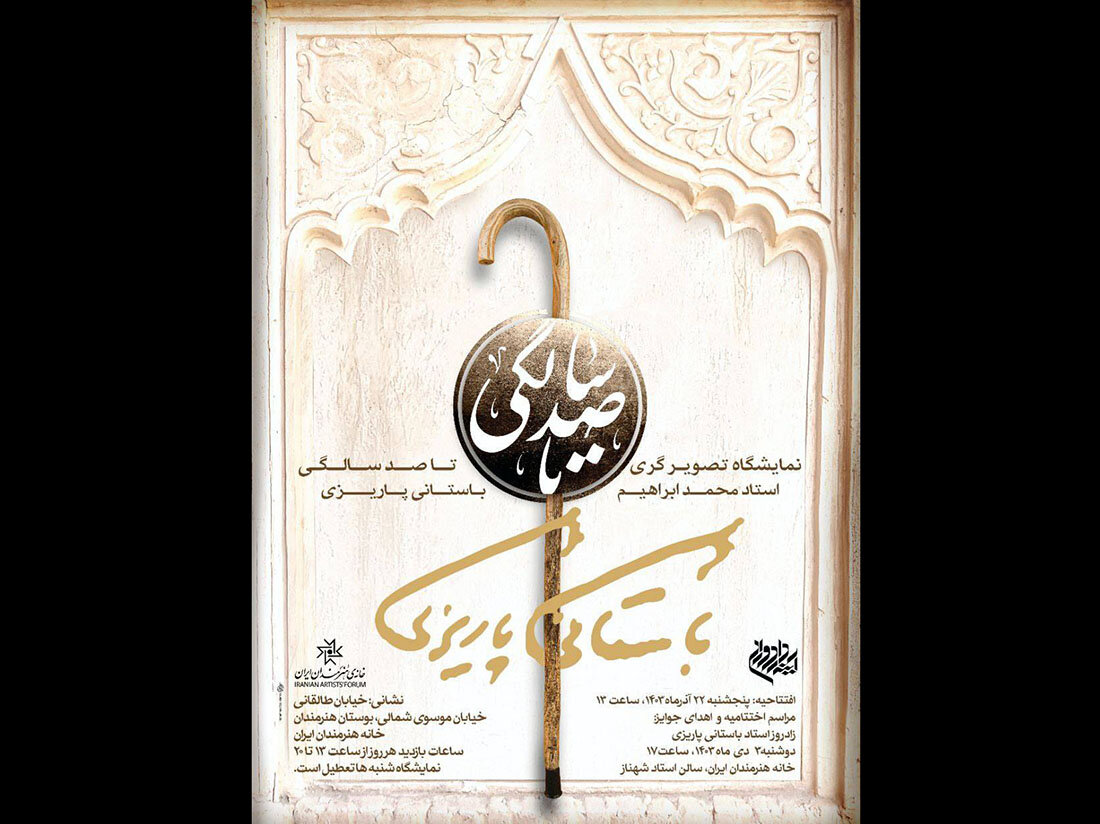 تا صد سالگی
نمایشگاه تصویرگری تا صد سالگی
استاد محمد ابراهیم باستانی پاریزی
باستانی پاریزی
افتتاحیه: پنجشنبه ۲۲ آذرماه ۱۴۰۳، ساعت ۱۳
مراسم اختتامیه و اهدای جوایز:
زادروز استاد باستانی پاریزی
دوشنبه ۳ دی ماه ۱۴۰۳، ساعت ۱۷
خانه هنرمندان ایران، سالن استاد شهناز
خانه‌ی هنرمندان ایران
IRANIAN ARTISTS' FORUM
نشانی: خیابان طالقانی
خیابان موسوی شمالی، بوستان هنرمندان
خانه هنرمندان ایران
ساعات بازدید هر روز از ساعت ۱۳ تا ۲۰
نمایشگاه شنبه ها تعطیل است.